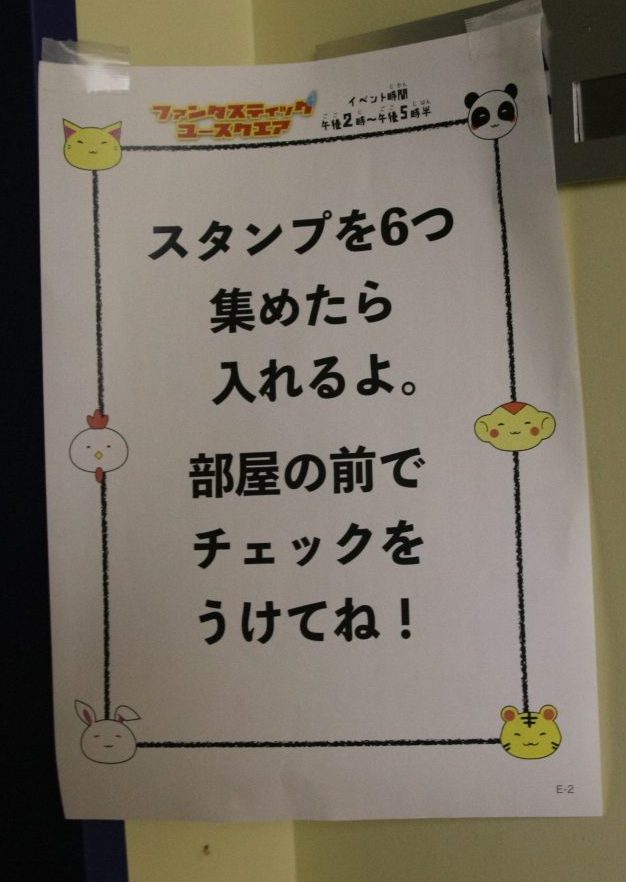 ファンタスティック
ユースクエア
イベント時間
午後2時～午後5時半
スタンプを6つ
集めたら
入れるよ。
部屋の前で
チェックを
うけてね！
E-2